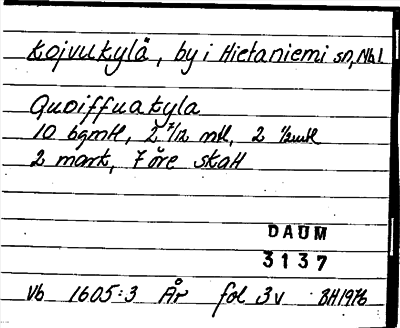 Koivukylä, by i Hietaniemi sn, Nbl
Quoiffuakyla
10 bgmtl, 2 7/12 mtl, 2 1/2 mtl
2 mark, 7 öre skatt
DAUM
3137
Vb 1605:3 År fol 3v BH1976